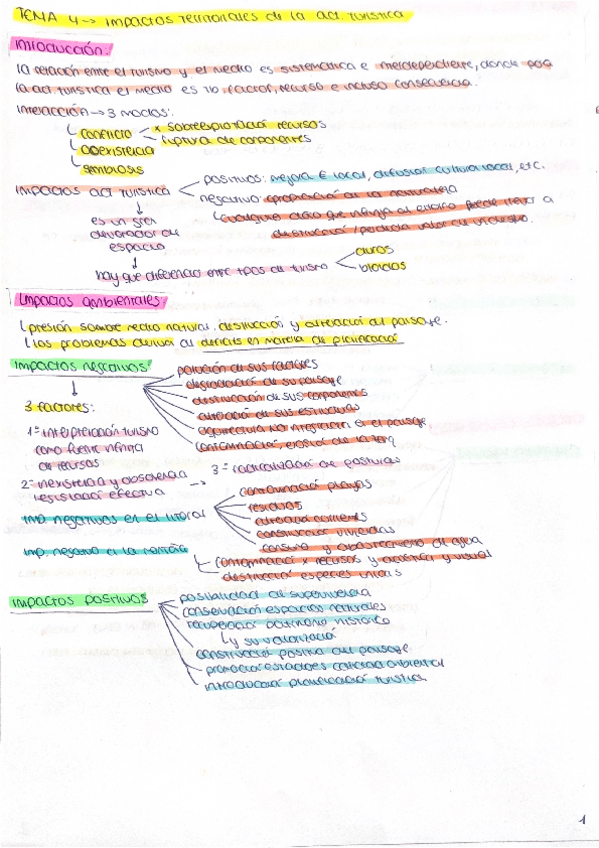 TEMA 4 → impactos territoriales de la act. turística
Introducción:
la relación entre el turismo y el medio es sistemática e interdependiente, donde para
la act turística el medio es no factor, recurso e incluso consecuencia.
Interacción → 3 modos:
conflicto x sobreexplotación recursos
ruptura de componentes
coexistencia
simbiosis
Impactos act turística
positivos: mejora E local, difusión cultura local, etc.
negativo: apropiación de la naturaleza
cualquier daño que influya al entorno puede llevar a
destrucción / perdida valor de
es un gran
devorador de
espacio
hay que diferenciar entre tipos de turismo
duros
blandos
Impactos ambientales:
presión sobre medio natural: destrucción y alteración del paisaje.
los problemas derivan del déficits en materia de planificación
Impactos negativos:
polución de sus factores
degradación de su paisaje
destrucción de sus componentes
alteración de sus estructuras
arquitectura no integración en el paisaje
contaminación de la zona
3 factores:
1º interpretación turismo
como fuente infinita
de recursos
2º inexistencia y obsolencia
legislación efectiva
→ 3º radicalización de posturas
imp negativos en el litoral
contaminación playas
residuos
alteración corrientes
construcción viviendas
consumo y abastecimiento de agua
imp. negativo a la
contaminación x recursos y acústica y visual
destrucción especies únicas
Impactos positivos
posibilidad de supervivencia
conservación espacios naturales
recuperación patrimonio histórico
y su valorización
construcción positiva del paisaje
promoción estándares calidad ambiental
introducción planificación turística
1